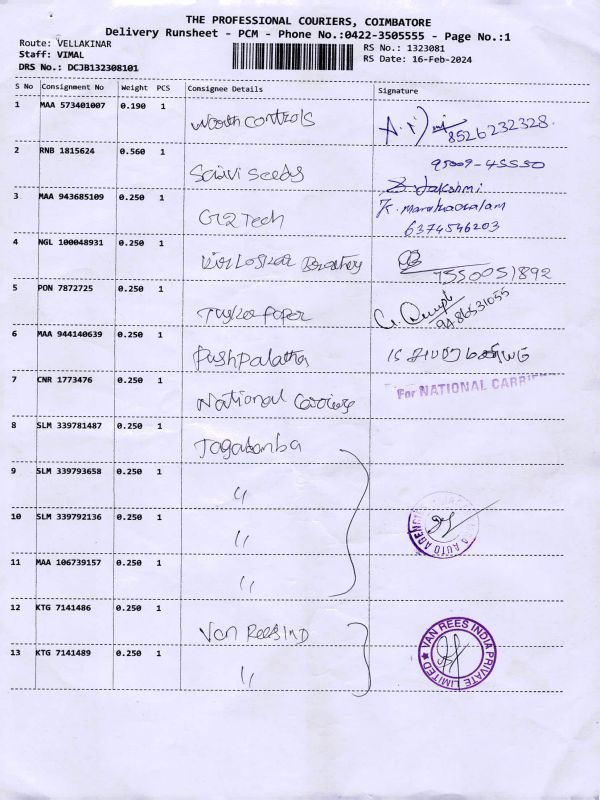 THE PROFESSIONAL COURIERS, COIMBATORE
Delivery Runsheet - PCM - Phone No.:0422-3505555 - Page No.:1
Route: VELLAKINAR
Staff: VIMAL
DRS No.: DCJB132308101
RS No.: 1323081
RS Date: 16-Feb-2024
S No Consignment No Weight PCS Consignee Details Signature
1 MAA 573401007 0.190 1 North Controls 8526232328
2 RNB 1815624 0.560 1 Saivi Seeds 95009-45550
3 MAA 943685109 0.250 1 G2 Tech 6374546203
4 NGL 100048931 0.250 1 Kirloskar Brothers 7550051892
5 PON 7872725 0.250 1 9486531055
6 MAA 944140639 0.250 1 Pushpalatha
7 CNR 1773476 0.250 1 National Carriers For NATIONAL CARRIE
8 SLM 339781487 0.250 1 Jagatamba
9 SLM 339793658 0.250 1 "
10 SLM 339792136 0.250 1 "
11 MAA 106739157 0.250 1 "
12 KTG 7141486 0.250 1 Van Rees IND
13 KTG 7141489 0.250 1 "
VAN REES INDIA PRIVATE LIMITED